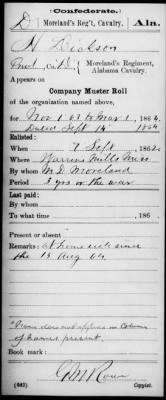 (Confederate.)
D Moreland's Reg't, Cavalry. Ala.
H Dickson
Pvt, Co. D, Moreland's Regiment, Alabama Cavalry.
Appears on
Company Muster Roll
of the organization named above,
for Nov 1 63 to Mar 1, 1864.
Dated Sept 14 1864
Enlisted:
When 7 Sept, 1862.
Where Warrens Mills Miss
By whom M. D. Moreland
Period 3 yrs or the war
Last paid:
By whom
To what time , 186 .
Present or absent
Remarks: At home sick since
the 15 Aug 64.
*Name does not appear in column
of names present.
Book mark:
(642) G M Rowe
Copyist.